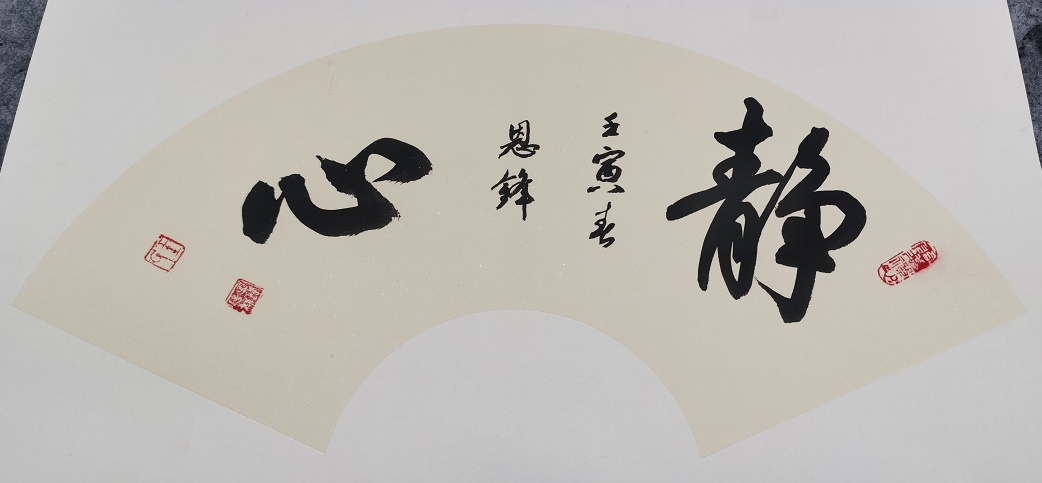 静心
壬寅春
恩锋